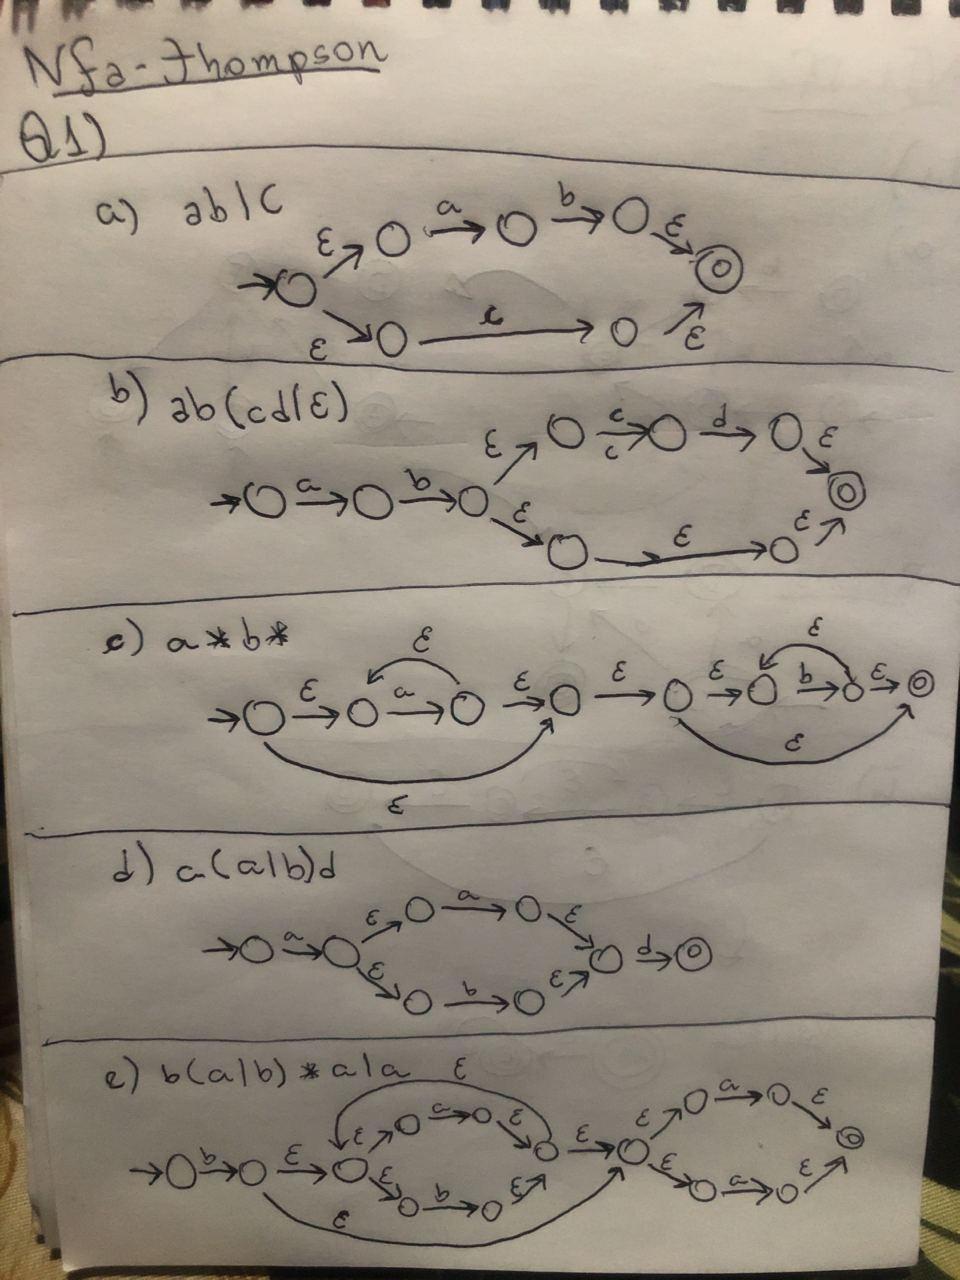 Nfa-Thompson
Q1)
a) ab|C
ε a b ε
ε c ε
b) ab(cd|ε)
a b ε c c d ε
ε ε ε
c) a*b*
ε ε a ε ε ε ε b ε
ε ε
d) a(a|b)d
a ε a ε d
ε b ε
e) b(a|b)*a|a
ε
b ε ε a ε ε ε a ε
ε b ε ε a ε
ε